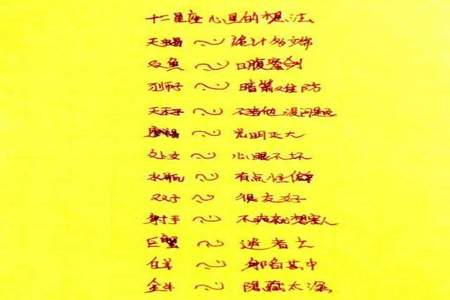 十二星座心里的想法
天蝎～诡计多端
双鱼～口腹蜜剑
狮子～暗箭难防
天秤～不害他 没问题
摩羯～光明正大
处女～心眼不坏
水瓶～有点小任性
双子～很友好
射手～不
巨蟹～逃者
白羊～身陷其中
金牛～隐藏太深